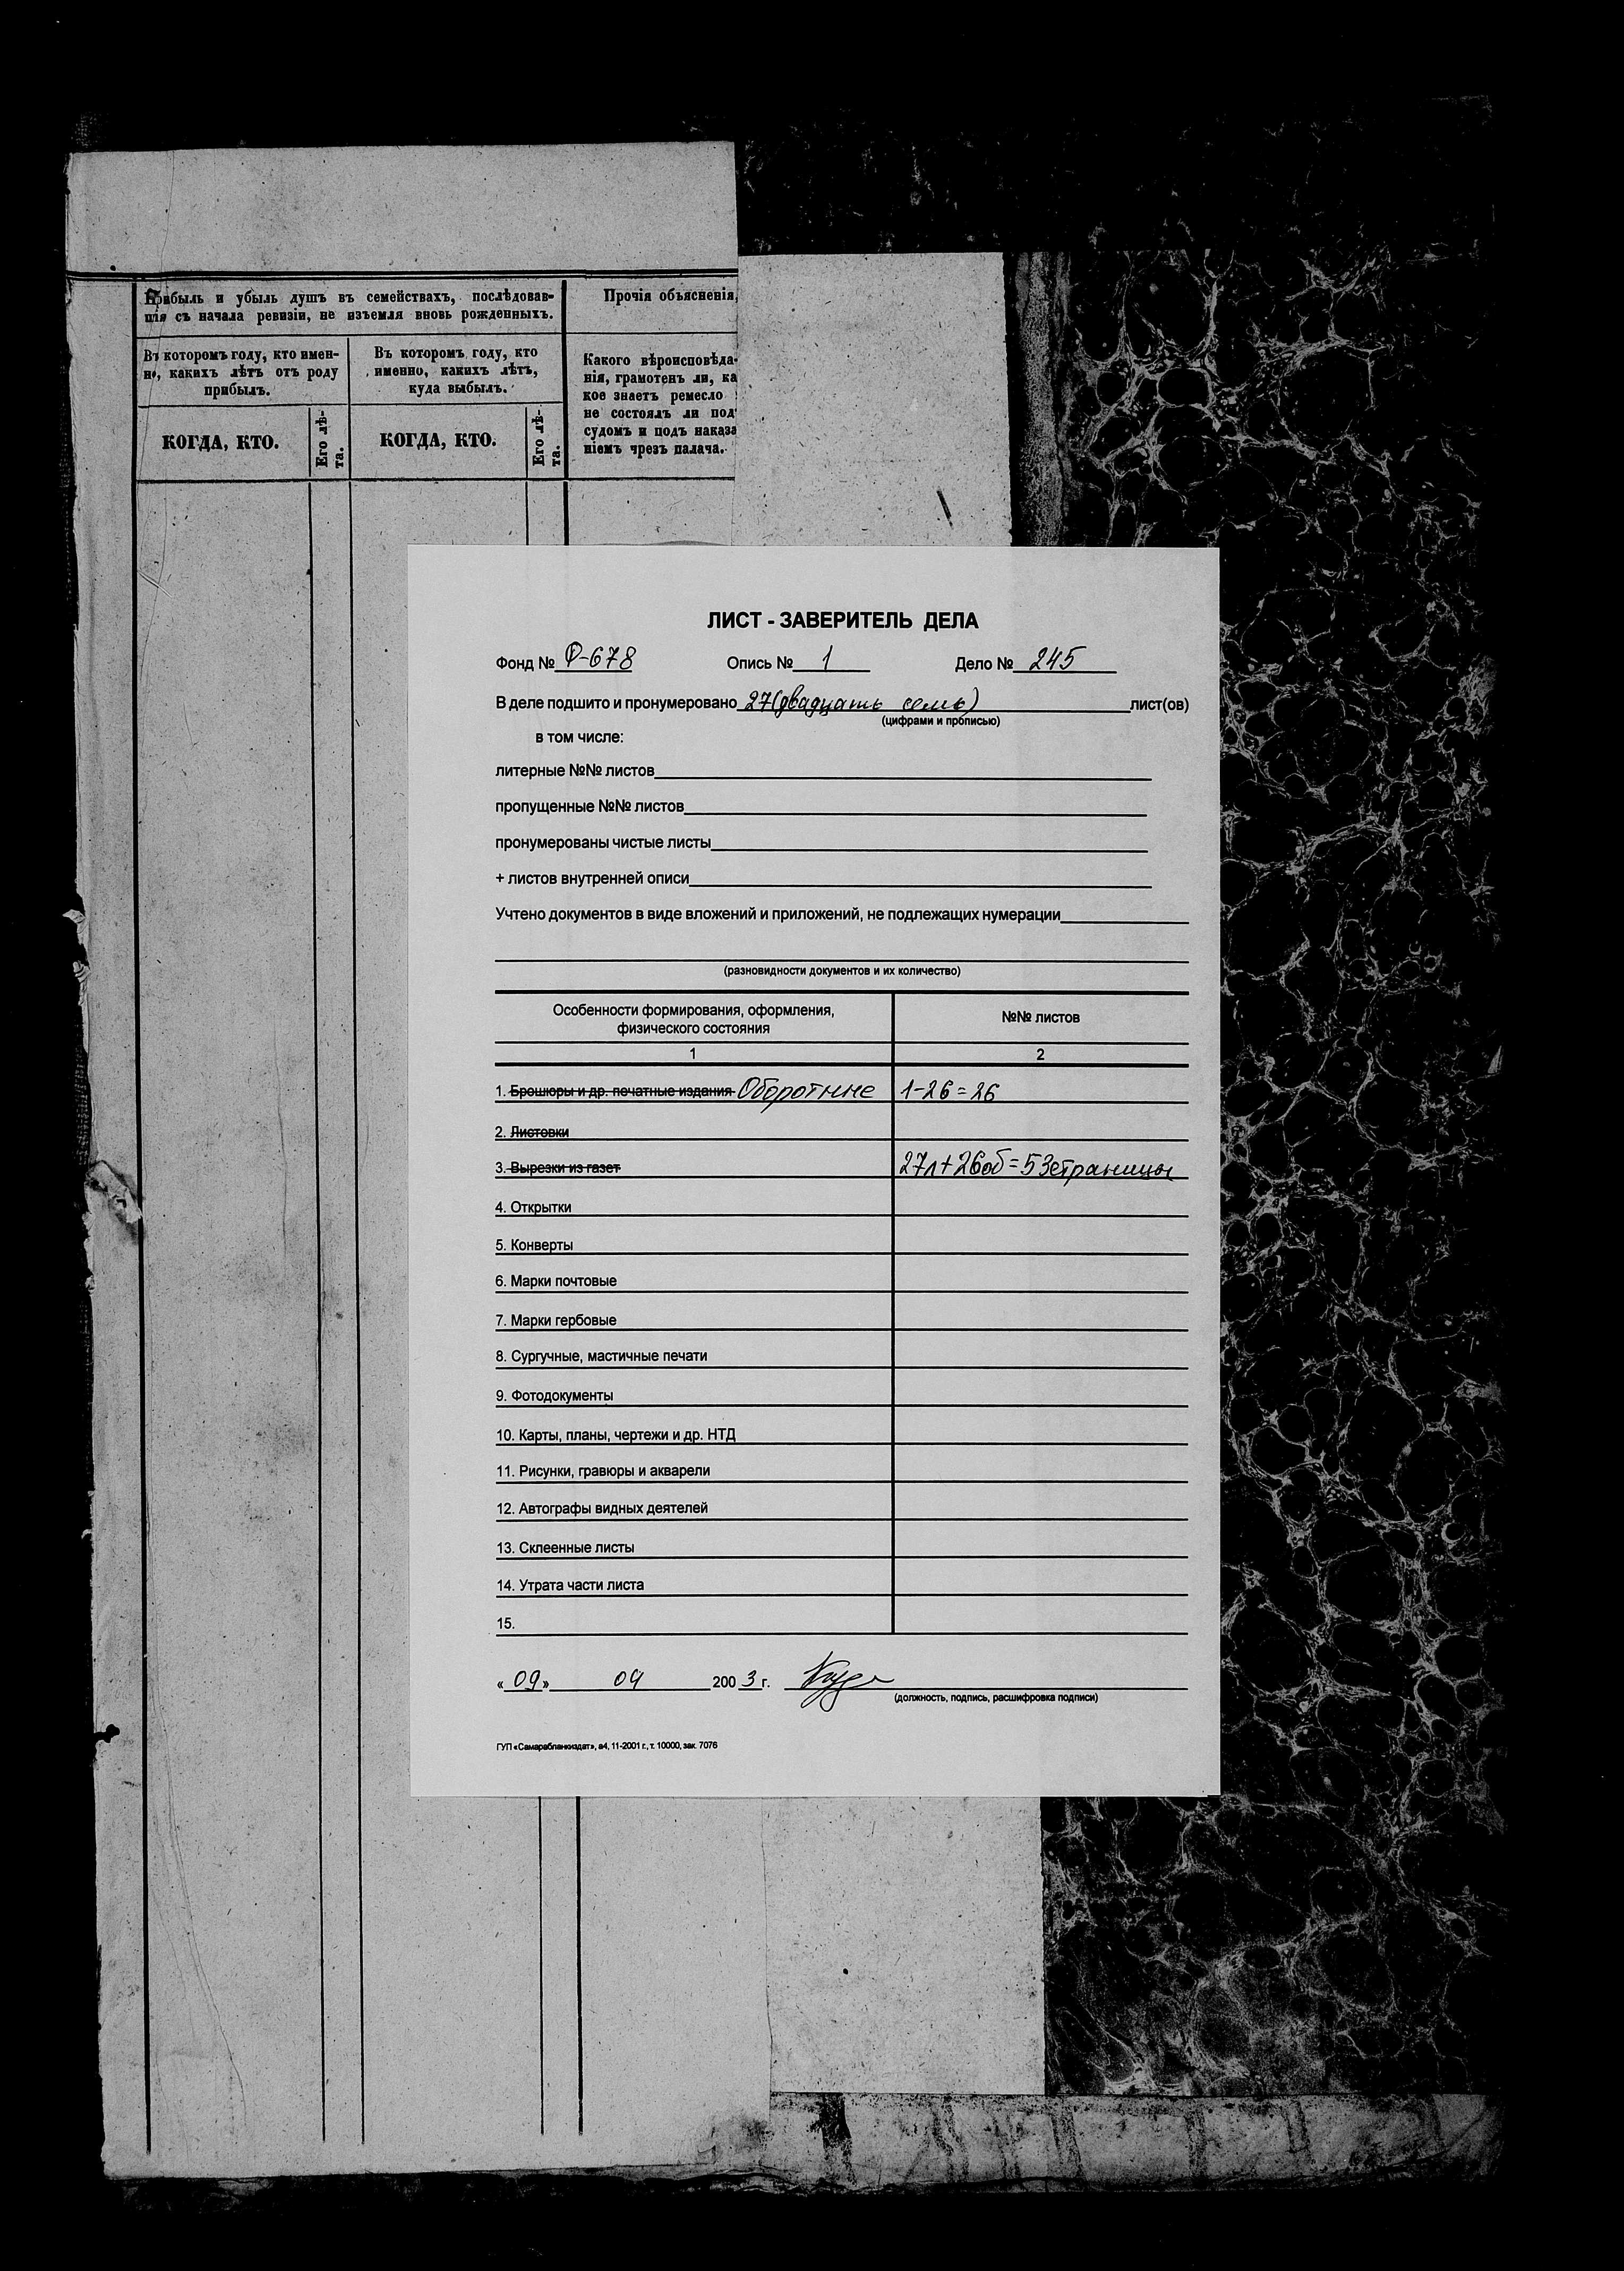 Прибыль и убыль душъ въ семействахъ, послѣдовав-
шія съ начала ревизіи, не изъемля вновь рожденныхъ.
Въ которомъ году, кто имен-
но, какихъ лѣтъ отъ роду
прибылъ.
Въ которомъ году, кто
именно, какихъ лѣтъ,
куда выбылъ.
КОГДА, КТО.
Его лѣ-
та.
КОГДА, КТО.
Его лѣ-
та.
Прочія объясненія,
Какого вѣроисповѣда-
нія, грамотенъ ли, ка
кое знаетъ ремесло
не состоялъ ли под
судомъ и подъ наказа
ніемъ чрезъ палача.
ЛИСТ - ЗАВЕРИТЕЛЬ ДЕЛА
Фонд № Ф-678 Опись № 1 Дело № 245
В деле подшито и пронумеровано 27 (двадцать семь) лист(ов)
(цифрами и прописью)
в том числе:
литерные №№ листов
пропущенные №№ листов
пронумерованы чистые листы
+ листов внутренней описи
Учтено документов в виде вложений и приложений, не подлежащих нумерации
(разновидности документов и их количество)
Особенности формирования, оформления,
физического состояния
№№ листов
1 2
1. Брошюры и др. печатные издания Оборотные 1-26 = 26
2. Листовки
3. Вырезки из газет 27л + 26об = 53 страницы
4. Открытки
5. Конверты
6. Марки почтовые
7. Марки гербовые
8. Сургучные, мастичные печати
9. Фотодокументы
10. Карты, планы, чертежи и др. НТД
11. Рисунки, гравюры и акварели
12. Автографы видных деятелей
13. Склеенные листы
14. Утрата части листа
15.
«09» 04 2003 г.
(должность, подпись, расшифровка подписи)
ГУП «Самарабланкиздат», а4, 11-2001 г., т. 10000, зак. 7076